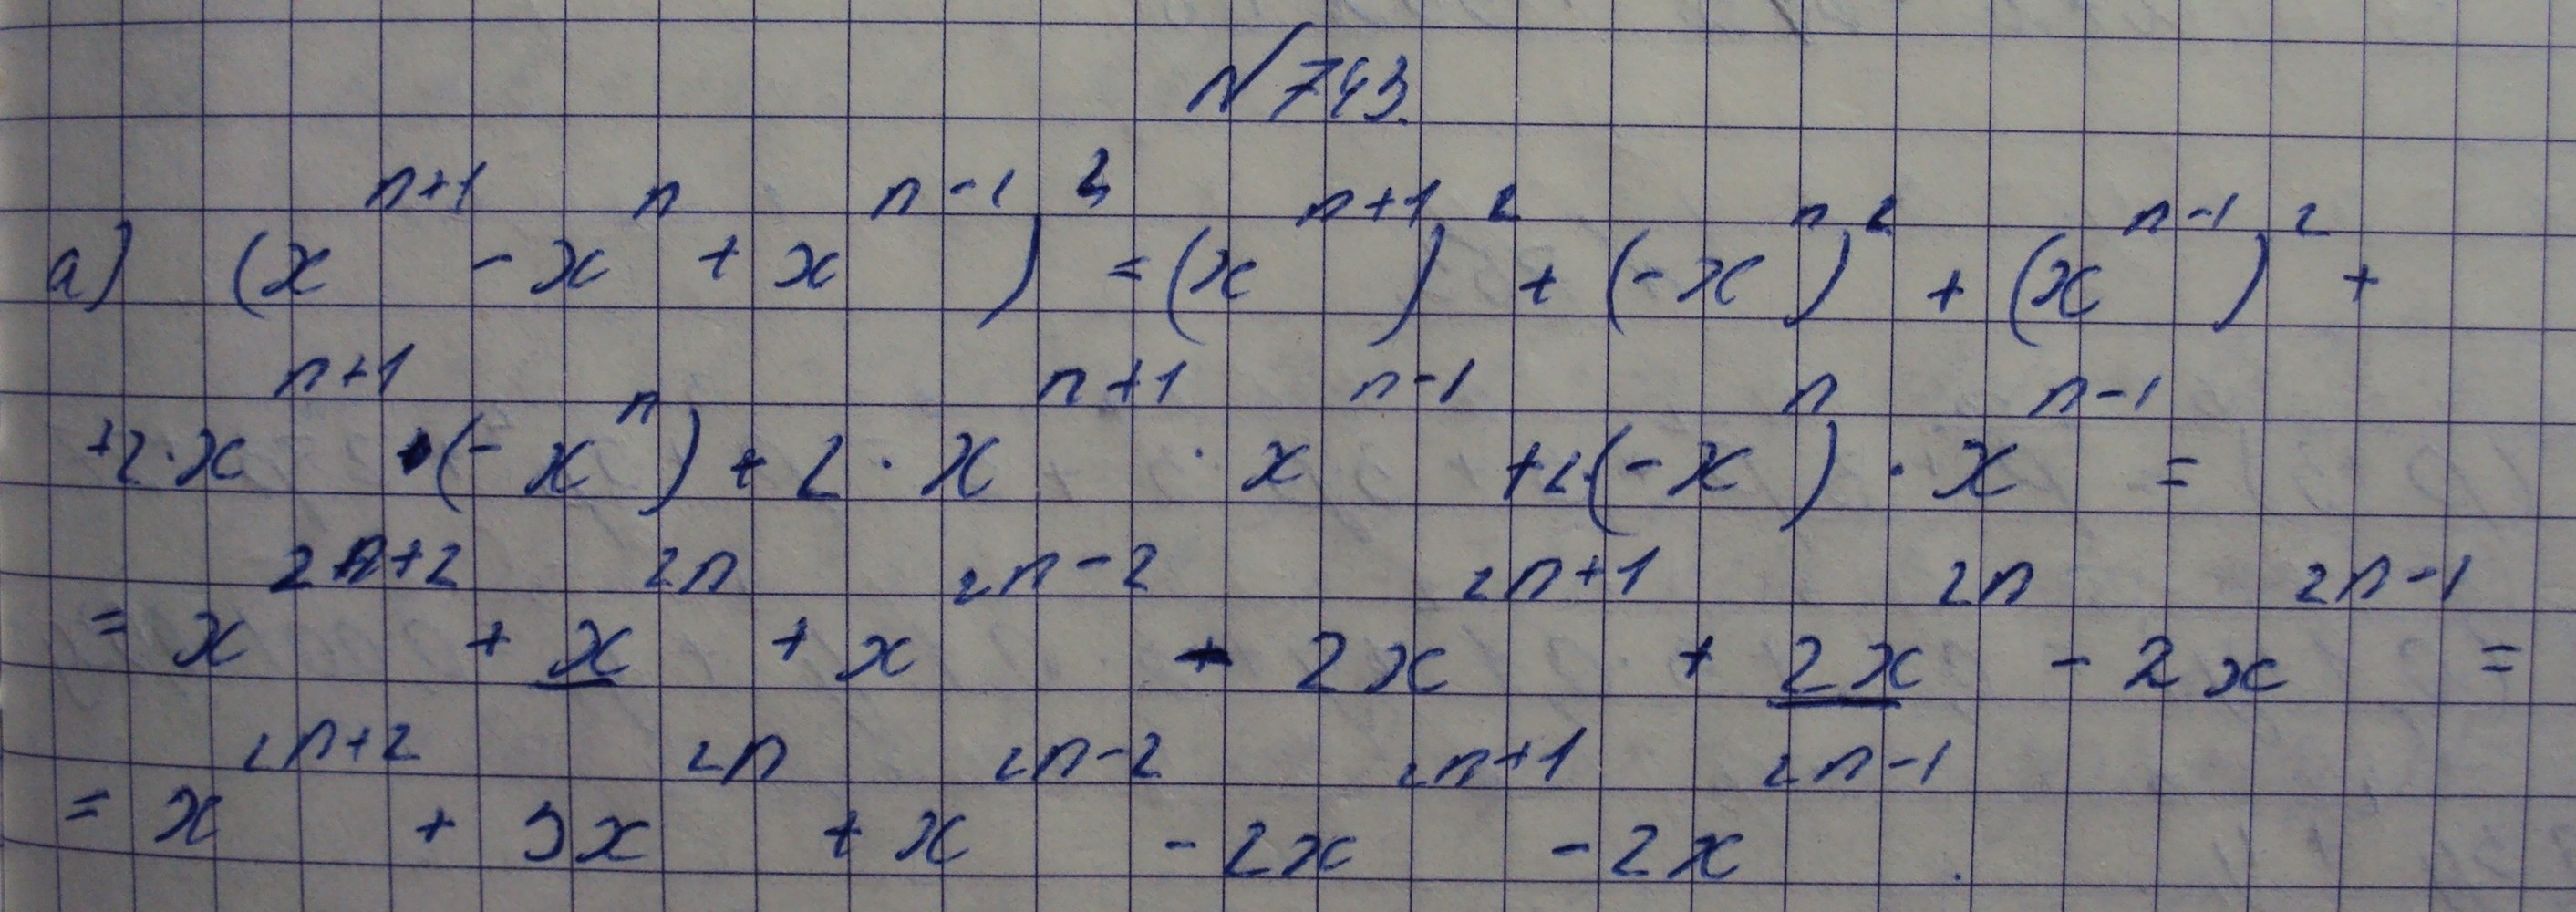 № 743.
а) (x^{n+1} - x^n + x^{n-1})^2 = (x^{n+1})^2 + (-x^n)^2 + (x^{n-1})^2 +
+2·x^{n+1}·(-x^n) + 2·x^{n+1}·x^{n-1} + 2·(-x^n)·x^{n-1} =
= x^{2n+2} + x^{2n} + x^{2n-2} - 2x^{2n+1} + 2x^{2n} - 2x^{2n-1} =
= x^{2n+2} + 3x^{2n} + x^{2n-2} - 2x^{2n+1} - 2x^{2n-1}